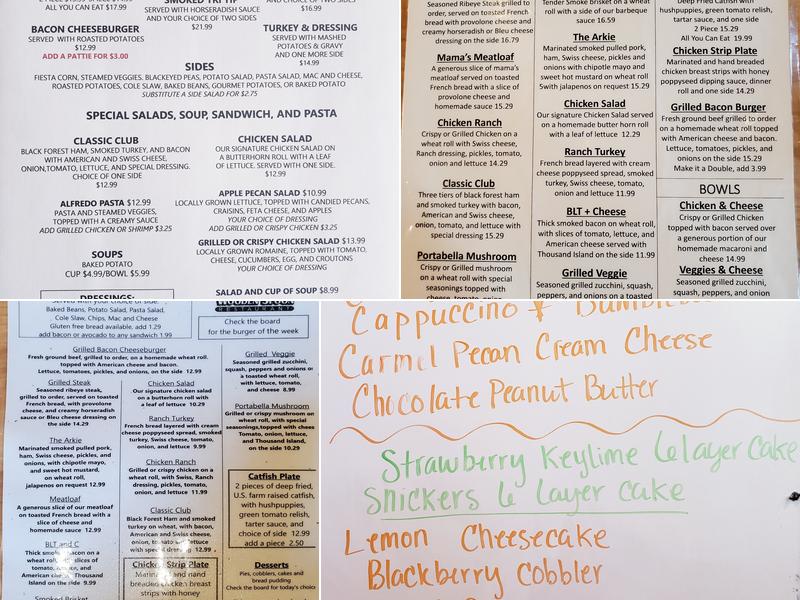 ALL YOU CAN EAT $17.99
SMOKED TRI TIP
SERVED WITH HORSERADISH SAUCE
AND YOUR CHOICE OF TWO SIDES
$21.99
AND YOUR CHOICE OF TWO SIDES
$16.99
BACON CHEESEBURGER
SERVED WITH ROASTED POTATOES
$12.99
ADD A PATTIE FOR $3.00
TURKEY & DRESSING
SERVED WITH MASHED
POTATOES & GRAVY
AND ONE SIDE
$14.99
SIDES
FIESTA CORN, STEAMED VEGGIES. BLACKEYED PEAS, POTATO SALAD, PASTA SALAD, MAC AND CHEESE,
ROASTED POTATOES, COLE SLAW, BAKED BEANS, GOURMET POTATOES, OR BAKED POTATO
SUBSTITUTE A SIDE SALAD FOR $2.75
SPECIAL SALADS, SOUP, SANDWICH, AND PASTA
CLASSIC CLUB
BLACK FOREST HAM, SMOKED TURKEY, AND BACON
WITH AMERICAN AND SWISS CHEESE,
ONION,TOMATO, LETTUCE, AND SPECIAL DRESSING.
CHOICE OF ONE SIDE
$12.99
CHICKEN SALAD
OUR SIGNATURE CHICKEN SALAD ON
A BUTTERHORN ROLL WITH A LEAF
OF LETTUCE. SERVED WITH ONE SIDE.
$12.99
ALFREDO PASTA $12.99
PASTA AND STEAMED VEGGIES,
TOPPED WITH A CREAMY SAUCE
ADD GRILLED CHICKEN OR SHRIMP $3.25
APPLE PECAN SALAD $10.99
LOCALLY GROWN LETTUCE, TOPPED WITH CANDIED PECANS,
CRAISINS, FETA CHEESE, AND APPLES
YOUR CHOICE OF DRESSING
ADD GRILLED OR CRISPY CHICKEN $3.25
SOUPS
BAKED POTATO
CUP $4.99/BOWL $5.99
GRILLED OR CRISPY CHICKEN SALAD $13.99
LOCALLY GROWN ROMAINE, TOPPED WITH TOMATO,
CHEESE, CUCUMBERS, EGG, AND CROUTONS
YOUR CHOICE OF DRESSING
DRESSINGS:
SALAD AND CUP OF SOUP $8.99
Seasoned Ribeye Steak grilled to
order, served on toasted French
bread with provolone cheese and
creamy horseradish or Bleu cheese
dressing on the side 16.79
Mama's Meatloaf
A generous slice of mama's
meatloaf served on toasted
French bread with a slice of
provolone cheese and
homemade sauce 15.29
Chicken Ranch
Crispy or Grilled Chicken on a
wheat roll with Swiss cheese,
Ranch dressing, pickles, tomato,
onion and lettuce 14.29
Classic Club
Three tiers of black forest ham
and smoked turkey with bacon,
American and Swiss cheese,
onion, tomato, and lettuce with
special dressing 15.29
Portabella Mushroom
Crispy or Grilled mushroom
on a wheat roll with special
seasonings topped with cheese
Tender Smoke Brisket on a wheat
roll with a side of our barbeque
sauce 16.59
The Arkie
Marinated smoked pulled pork,
ham, Swiss cheese, pickles and
onions with chipotle mayo and
sweet hot mustard on wheat roll
5with jalapenos on request 15.29
Chicken Salad
Our signature Chicken Salad served
on a homemade butter horn roll
with a leaf of lettuce 12.29
Ranch Turkey
French bread layered with cream
cheese poppyseed spread, smoked
turkey, Swiss cheese, tomato,
onion and lettuce 11.99
BLT + Cheese
Thick smoked bacon on wheat roll,
with slices of tomato, lettuce, and
American cheese served with
Thousand Island on the side 11.99
Grilled Veggie
Seasoned grilled zucchini, squash,
peppers, and onions on a toasted
Deep Fried Catfish with
hushpuppies, green tomato relish,
tartar sauce, and one side
2 Piece 15.29
All You Can Eat 19.99
Chicken Strip Plate
Marinated and hand breaded
chicken breast strips with honey
poppyseed dipping sauce, dinner
roll and one side 14.29
Grilled Bacon Burger
Fresh ground beef grilled to order
on a homemade wheat roll topped
with American cheese and bacon.
Lettuce, tomatoes, pickles, and
onions on the side 15.29
Make it a Double, add 3.99
BOWLS
Chicken & Cheese
Crispy or Grilled Chicken
topped with bacon served over
a generous portion of our
homemade macaroni and
cheese 14.99
Veggies & Cheese
Seasoned grilled zucchini,
squash, peppers, and onion
Served with your choice of side.
Baked Beans, Potato Salad, Pasta Salad,
Cole Slaw, Chips, Mac and Cheese
Gluten free bread available, add 1.29
add bacon or avocado to any sandwich 1.99
RESTAURANT
Check the board
for the burger of the week
Grilled Bacon Cheeseburger
Fresh ground beef, grilled to order, on a homemade wheat roll.
topped with American cheese and bacon.
Lettuce, tomatoes, pickles, and onions, on the side 12.99
Grilled Steak
Seasoned ribeye steak,
grilled to order, served on toasted
French bread, with provolone
cheese, and creamy horseradish
sauce or Bleu cheese dressing on
the side 14.29
The Arkie
Marinated smoked pulled pork,
ham, Swiss cheese, pickles, and
onions, with chipotle mayo,
and sweet hot mustard,
on wheat roll,
jalapenos on request 12.99
Meatloaf
A generous slice of our meatloaf
on toasted French bread with a
slice of cheese and
homemade sauce 12.99
BLT and C
Thick bacon on a
wheat roll, slices of
tomato, lettuce, and
American Thousand
Island on the side 9.99
Smoked Brisket
Chicken Salad
Our signature chicken salad
on a butterhorn roll with
a leaf of lettuce 10.29
Ranch Turkey
French bread layered with cream
cheese poppyseed spread, smoked
turkey, Swiss cheese, tomato,
onion, and lettuce 9.99
Chicken Ranch
Grilled or crispy chicken on a
wheat roll, with Swiss, Ranch
dressing, pickles, tomato,
onion, and lettuce 11.99
Classic Club
Black Forest Ham and smoked
turkey on wheat, with bacon,
American and Swiss cheese,
onion, tomato, and lettuce
with special dressing 12.99
Chicken Strip Plate
Marinated and hand
breaded chicken breast
strips with honey
Grilled Veggie
Seasoned grilled zucchini,
squash, peppers and onions on
a toasted wheat roll,
with lettuce, tomato,
and cheese 8.99
Portabella Mushroom
Grilled or crispy mushroom on
wheat roll, with special
seasonings,topped with cheese
Tomato, onion, lettuce,
and Thousand Island,
on the side 10.29
Catfish Plate
2 pieces of deep fried,
U.S. farm raised catfish,
with hushpuppies,
green tomato relish,
tarter sauce, and
choice of side 12.99
add a piece 2.50
Desserts
Pies, cobblers, cakes and
bread pudding
Check the board for today's choice
Cappuccino &
Carmel Pecan Cream Cheese
Chocolate Peanut Butter
Strawberry Keylime 6 layer cake
Snickers 6 layer cake
Lemon Cheesecake
Blackberry Cobbler